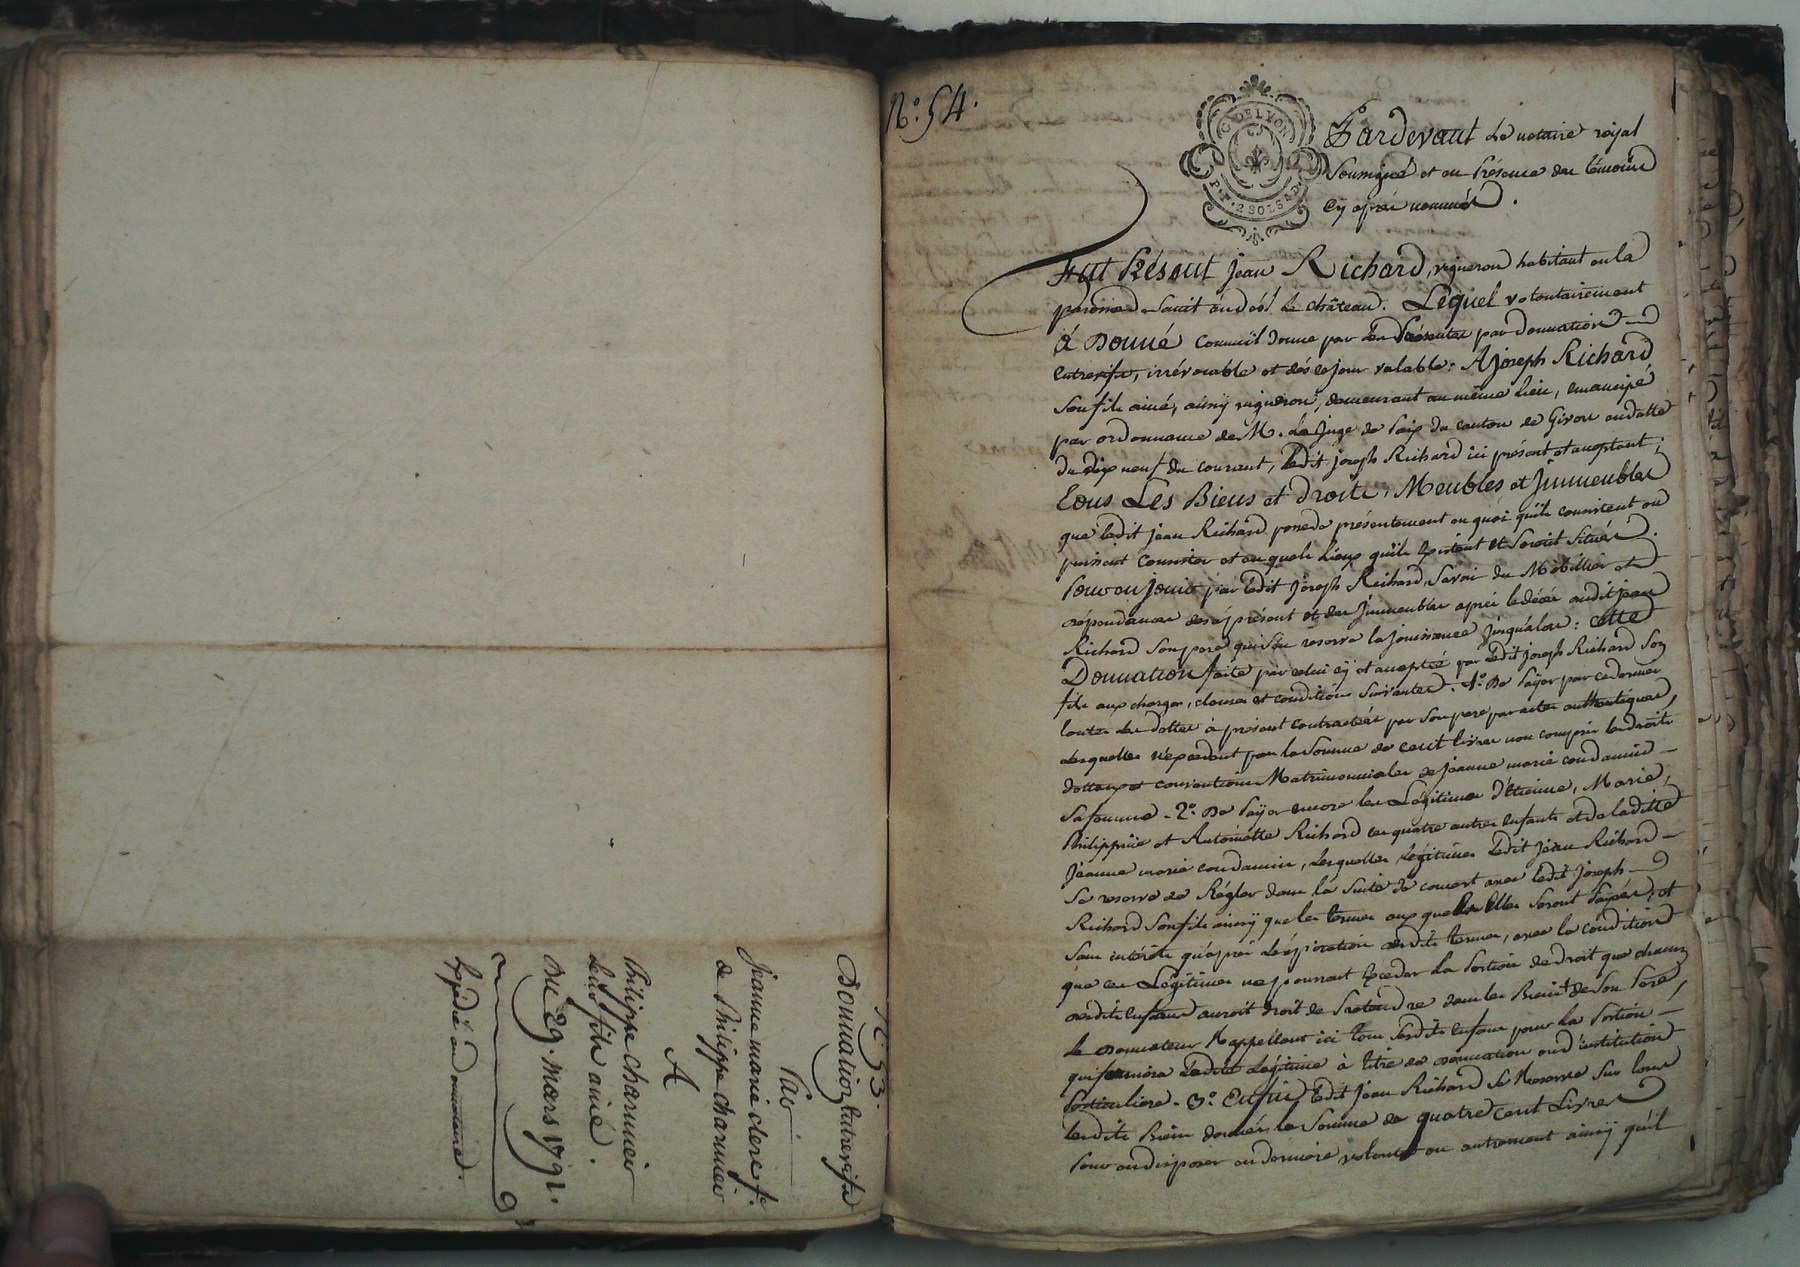 N.° 53.
Donnation entrevifs
Par
Jeanne marie clerc f.e
de Philippe charmier
A
Philippe charmier
leur fils ainé.
Du 29. mars 1792.
Expédié au donnataire.
N.° 54.
G. DE LYON
P.P. 2 SOLS 4 D.
Pardevant Le notaire royal
Soussigné et en Présence des témoins
cy après nommés.
Fut Présent Jean Richard, vigneron habitant en la
paroisse Saint andéol le château. Lequel volontairement
à Donné comm'il donne par les Présentes par donnation
entrevifs, irrévocable et dés ce jour valable: A Joseph Richard
son fils ainé, aussy vigneron, demeurant au même Lieu, emancipé
par ordonnance de M. Le Juge de Paix du canton de Givors en datte
du dix neuf du courant, Ledit joseph Richard ici présent et acceptant;
Tous Les Biens et droits, Meubles et Immeubles
que ledit jean Richard possede présentement en quoi qu'ils consistent ou
puissent consister et en quels Lieux qu'ils Existent et Soient Situés.
Pour en Jouir par ledit Joseph Richard, Savoir du Mobillier et
dépendances dés à présent et des Jmmeubles après le décès audit jean
Richard Son pere qui s'en reserve la jouissance jusqu'alors: cette
Donnation faite par celui cy et acceptée par ledit joseph Richard Son
fils aux charges, clauses et conditions Suivantes. 1.° De Payer par ce dernier
toutes les dettes à présent contractées par Son pere par actes authentiques,
Lesquelles n'excedent pas la Somme de cent livres non compris les droits
dottaux et conventions Matrimonniales de jeanne marie condamin
Sa femme. 2.° De Payer encore les Légitimes d'Etienne, Marie,
Philippine et Antoinette Richard ses quatre autres enfants et de laditte
Jeanne marie condamin, Lesquelles Légitimes ledit Jean Richard
Se reserve de Régler dans la Suite de concert avec ledit Joseph
Richard Son fils ainsy que les termes aux quels Elles Seront Payées, et
Sans intérêts qu'après l'expiration desdits termes, avec la condition
que ces Légitimes ne pourront Exceder la Portion de droit que chacun
desdits enfans auroit droit de Pretendre dans les Biens de Son Pere,
Le Donnateur Rappellant ici tous sesdits enfans pour la Portion
qui formera Ladite Légitime à titre de donnation ou d'institution
Particuliere. 3.° Enfin, Ledit Jean Richard Se Reserve Sur tous
lesdits Biens donnés la Somme de quatre cent Livres
Pour en disposer en derniere volonté ou autrement ainsy qu'il